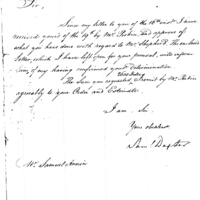 Sir,
Since my letter to you of the 16th inst. I have
received yours of the 19th by Mr. and approve of
what you have done with regard to Mr. Shepherd. The enclosed
letter, which I have left open for your perusal, will inform
him of my having confirmed your Determination
The Sum you requested, I remit by Mr.
agreeably to your Order and Estimate.
I am, Sir,
Your obedient
Sam Dexter
Mr. Samuel Annin